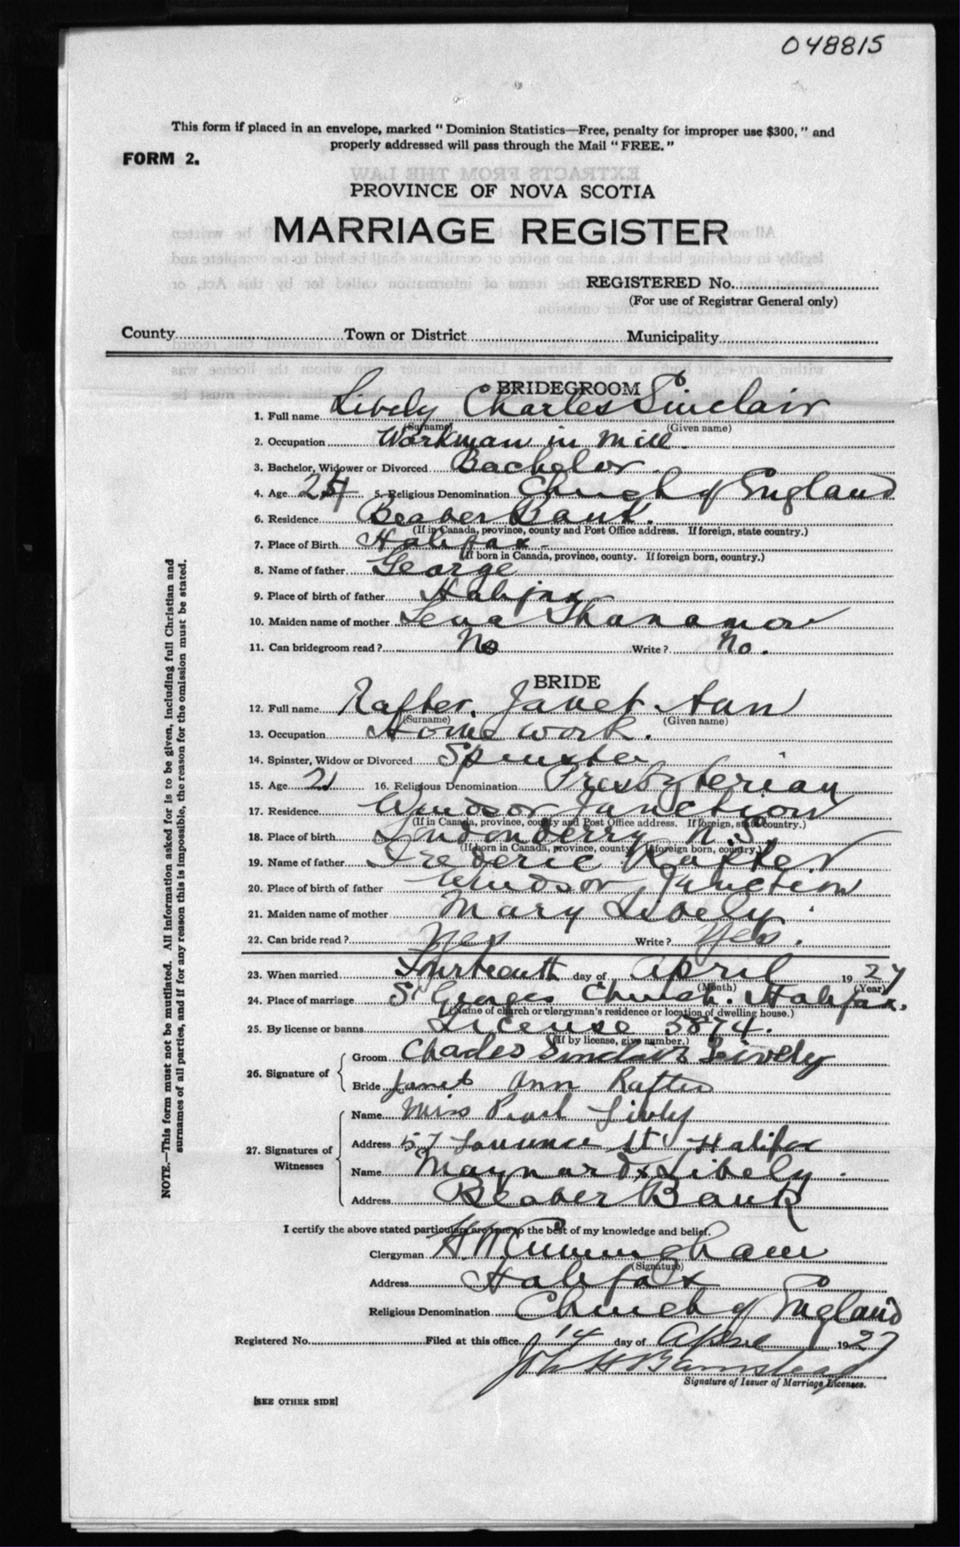 048815
This form if placed in an envelope, marked "Dominion Statistics—Free, penalty for improper use $300," and
properly addressed will pass through the Mail "FREE."
FORM 2.
PROVINCE OF NOVA SCOTIA
MARRIAGE REGISTER
REGISTERED No.
(For use of Registrar General only)
County Town or District Municipality
BRIDEGROOM
1. Full name Lively Charles Sinclair
(Surname) (Given name)
2. Occupation Workman in Mill.
3. Bachelor, Widower or Divorced Bachelor.
4. Age 24 5. Religious Denomination Church of England
6. Residence Beaver Bank.
(If in Canada, province, county and Post Office address. If foreign, state country.)
7. Place of Birth Halifax.
(If born in Canada, province, county. If foreign born, country.)
8. Name of father George
9. Place of birth of father Halifax
10. Maiden name of mother Lena
11. Can bridegroom read? No Write? No.
BRIDE
12. Full name Rafter, Janet Ann
(Surname) (Given name)
13. Occupation Home work.
14. Spinster, Widow or Divorced Spinster
15. Age 21 16. Religious Denomination Presbyterian
17. Residence Windsor Junction
(If in Canada, province, county and Post Office address. If foreign, state country.)
18. Place of birth Londonderry N.S.
(If born in Canada, province, county. If foreign born, country.)
19. Name of father Frederic Rafter
20. Place of birth of father Windsor Junction
21. Maiden name of mother Mary Lively.
22. Can bride read? Yes Write? Yes.
23. When married Fourteenth day of April 1927
(Month) (Year)
24. Place of marriage St Georges Church. Halifax.
(Name of church or clergyman's residence or location of dwelling house.)
25. By license or banns License 5874.
(If by license, give number.)
26. Signature of Groom Charles Sinclair Lively
Bride Janet Ann Rafter
27. Signatures of Witnesses
Name Miss Pearl Lively
Address 57 St Halifax
Name Maynard Lively.
Address Beaver Bank
I certify the above stated particulars are true to the best of my knowledge and belief.
Clergyman H W Cunningham
(Signature)
Address Halifax
Religious Denomination Church of England
Registered No. Filed at this office 14 day of April 1927
John H Barnstead
Signature of Issuer of Marriage Licenses.
[SEE OTHER SIDE]
NOTE.—This form must not be mutilated. All information asked for is to be given, including full Christian and
surnames of all parties, and if for any reason this is impossible, the reason for the omission must be stated.